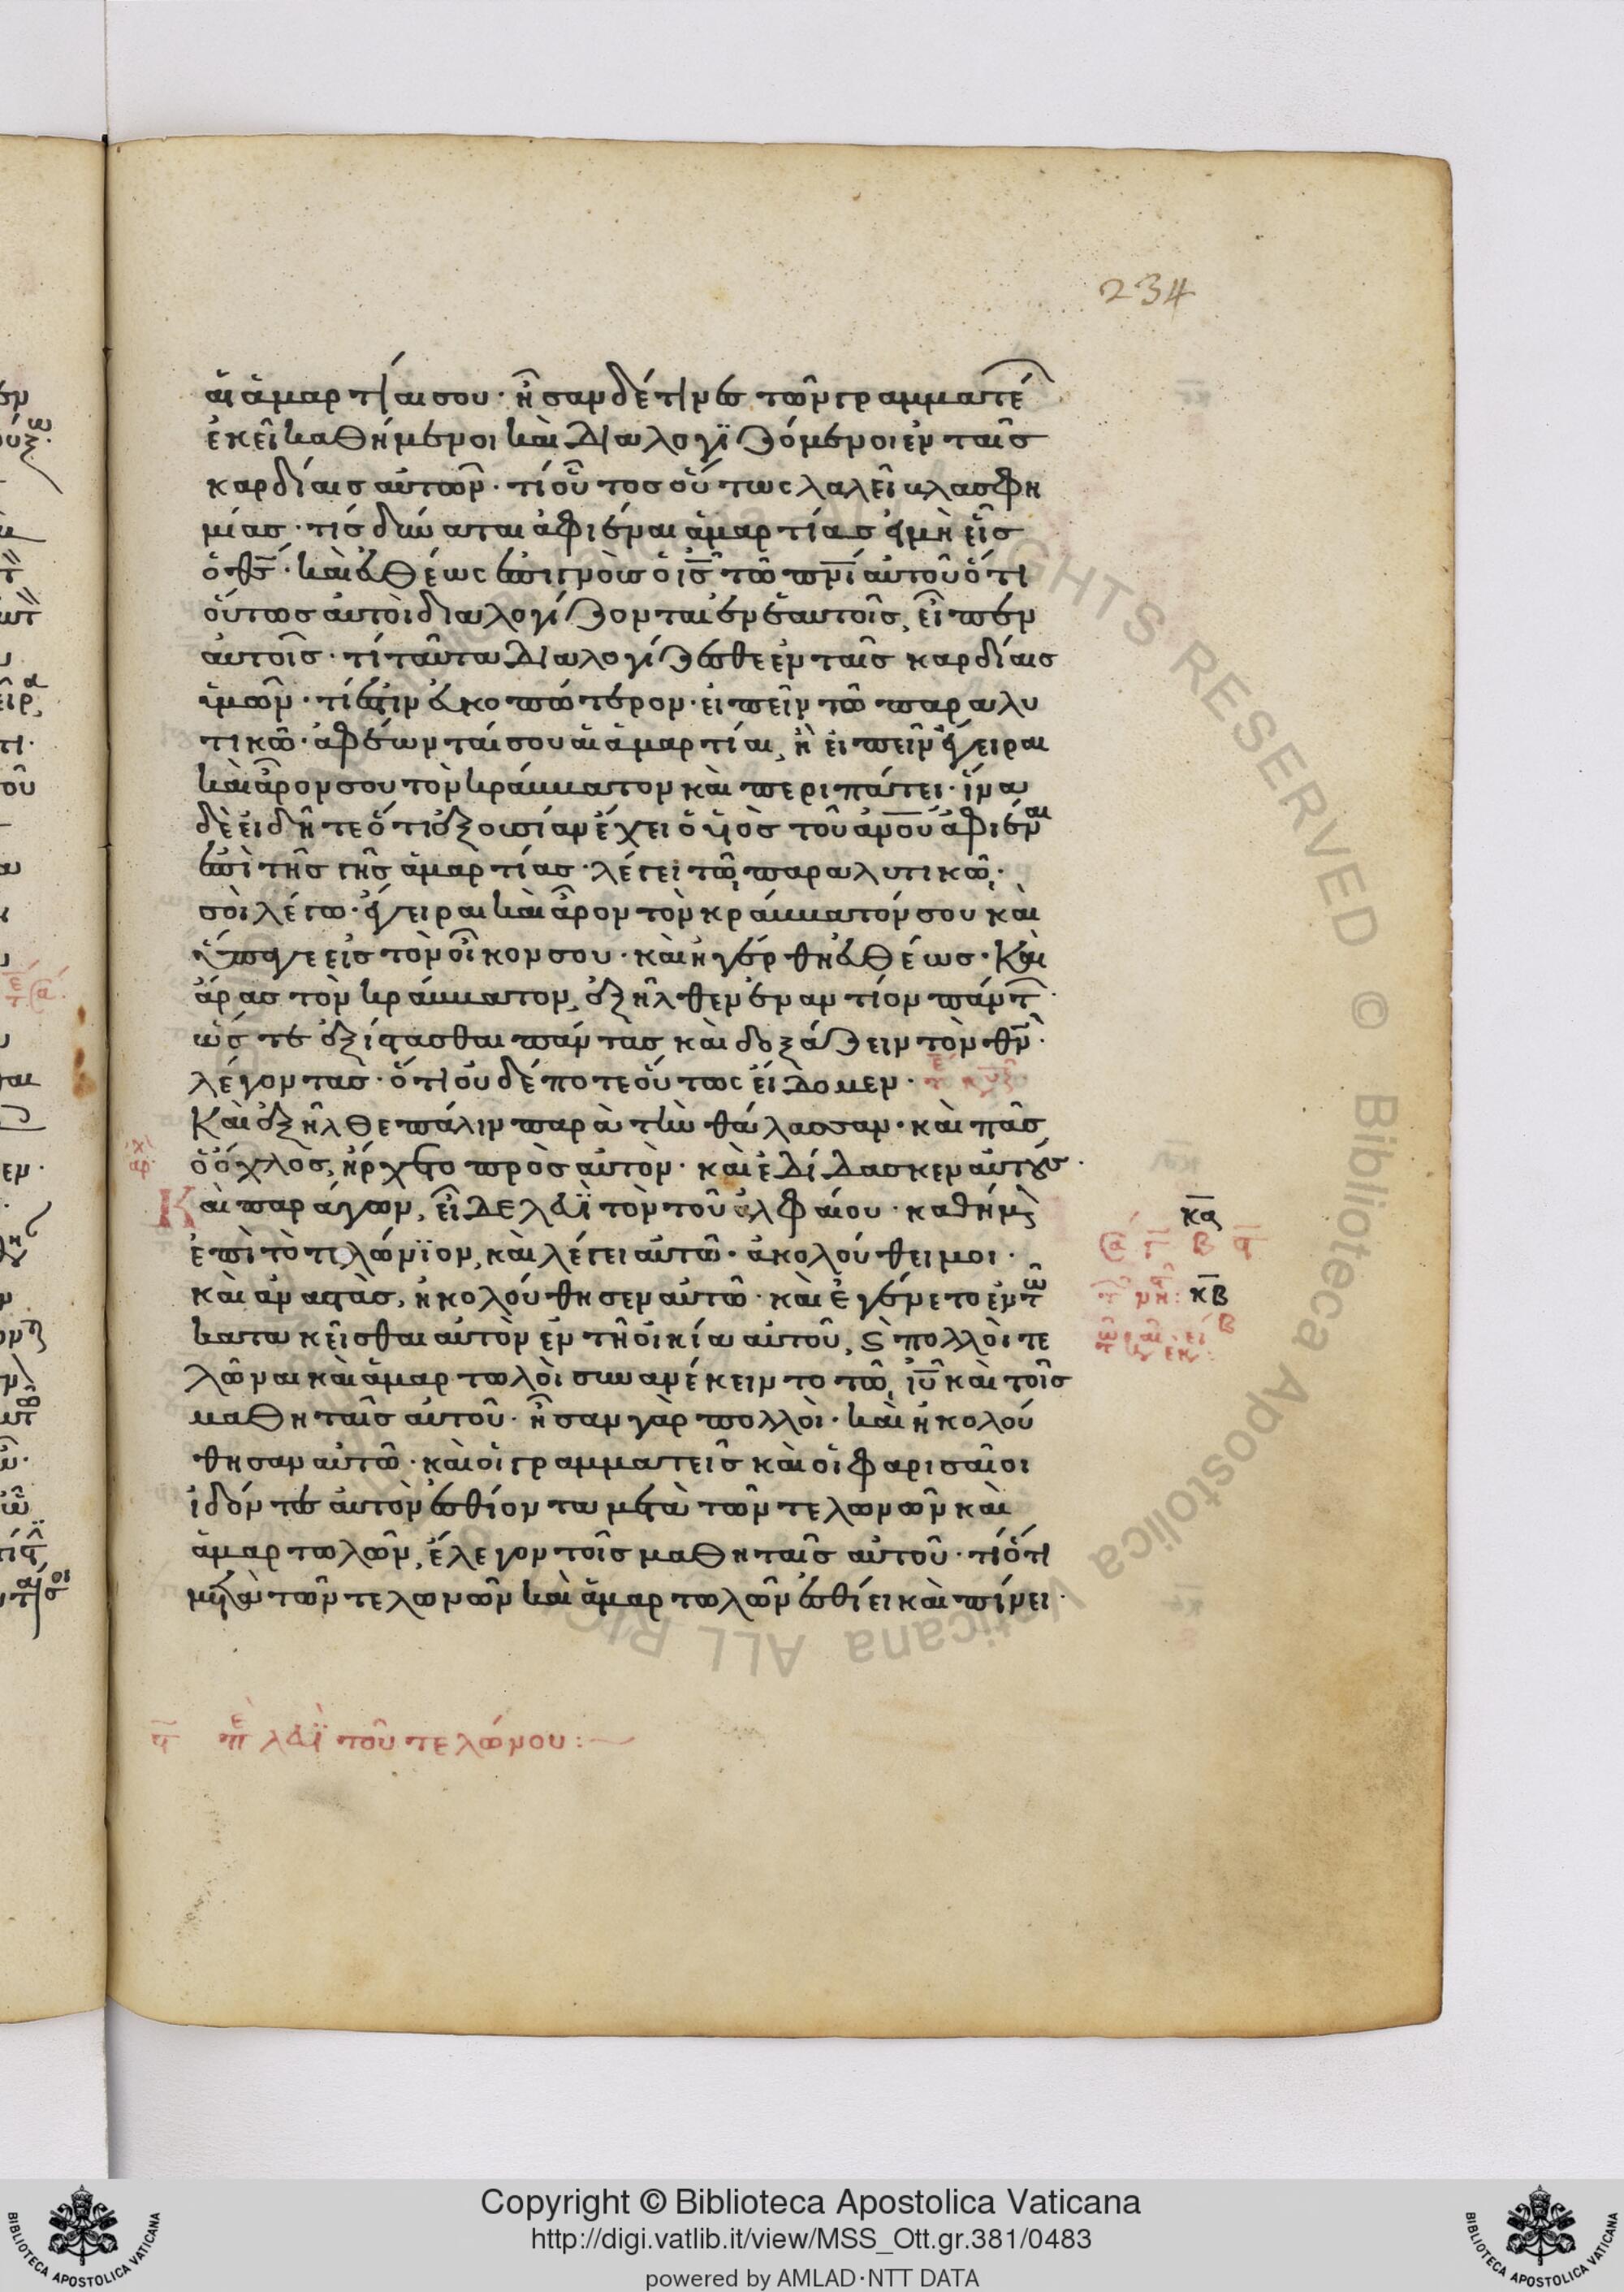 234
αἱ ἁμαρτίαι σου· ἦσαν δέ τινες τῶν γραμματέ
ἐκεῖ καθήμενοι καὶ διαλογιζόμενοι ἐν ταῖς
καρδίαις αὐτῶν· τί οὗτος οὕτως λαλεῖ βλασφη
μίας· τίς δύναται ἀφιέναι ἁμαρτίας εἰ μὴ εἷς
ὁ θς̅· καὶ εὐθέως ἐπιγνοὺς ὁ ις̅ τῶ πνι̅ αὐτοῦ ὅτι
οὕτως αὐτοὶ διαλογίζονται ἐν ἑαυτοῖς, εἶπεν
αὐτοῖς· τί ταῦτα διαλογίζεσθε ἐν ταῖς καρδίαις
ὑμῶν· τί ἐστιν εὐκοπώτερον· εἰπεῖν τῶ παραλυ
τικῶ· ἀφέωνταί σου αἱ ἁμαρτίαι, ἢ εἰπεῖν ἔγειραι
καὶ ἆρον σου τὸν κράββατον καὶ περιπάτει· ἵνα
δὲ εἰδῆτε ὅτι ἐξουσίαν ἔχει ὁ υἱὸς τοῦ ανου̅ ἀφιέναι
ἐπὶ τῆς γῆς ἁμαρτίας· λέγει τῶ παραλυτικῶ·
σοὶ λέγω· ἔγειραι καὶ ἆρον τὸν κράββατόν σου καὶ
ὕπαγε εἰς τὸν οἶκον σου· καὶ ἠγέρθη εὐθέως· Καὶ
ἄρας τὸν κράββατον, ἐξῆλθεν ἐναντίον πάντ
ὥστε ἐξίστασθαι πάντας καὶ δοξάζειν τὸν θν̅·
λέγοντας· ὅτι οὐδέποτε οὕτως εἴδομεν·
Καὶ ἐξῆλθε πάλιν παρὰ τὴν θάλασσαν· καὶ πᾶς
ὁ ὄχλος, ἤρχετο πρὸς αὐτὸν· καὶ ἐδίδασκεν αὐτούς·
Καὶ παράγων, εἶδε λευΐ τὸν τοῦ ἀλφαίου· καθήμε
ἐπὶ τὸ τελώνϊον, καὶ λέγει αὐτῶ· ἀκολούθει μοι·
καὶ ἀναστὰς, ἠκολούθησεν αὐτῶ· καὶ ἐγένετο ἐν τῶ
κατακεῖσθαι αὐτὸν ἐν τῆ οἰκία αὐτοῦ, ϛ πολλοὶ τε
λῶναι καὶ ἁμαρτωλοὶ συνανέκειντο τῶ ιυ̅ καὶ τοῖς
μαθηταῖς αὐτοῦ· ἦσαν γὰρ πολλοὶ· καὶ ἠκολού
θησαν αὐτῶ· καὶ οἱ γραμματεῖς καὶ οἱ φαρισαῖοι
ἰδόντες αὐτὸν ἐσθίοντα μετὰ τῶν τελωνῶν καὶ
ἁμαρτωλῶν, ἔλεγον τοῖς μαθηταῖς αὐτοῦ· τί ὅτι
μετὰ τῶν τελωνῶν καὶ ἁμαρτωλῶν ἐσθίει καὶ πίνει·
κα̅
κβ̅
πε λευΐ τοῦ τελώνου:
Copyright © Biblioteca Apostolica Vaticana
http://digi.vatlib.it/view/MSS_Ott.gr.381/0483
powered by AMLAD·NTT DATA